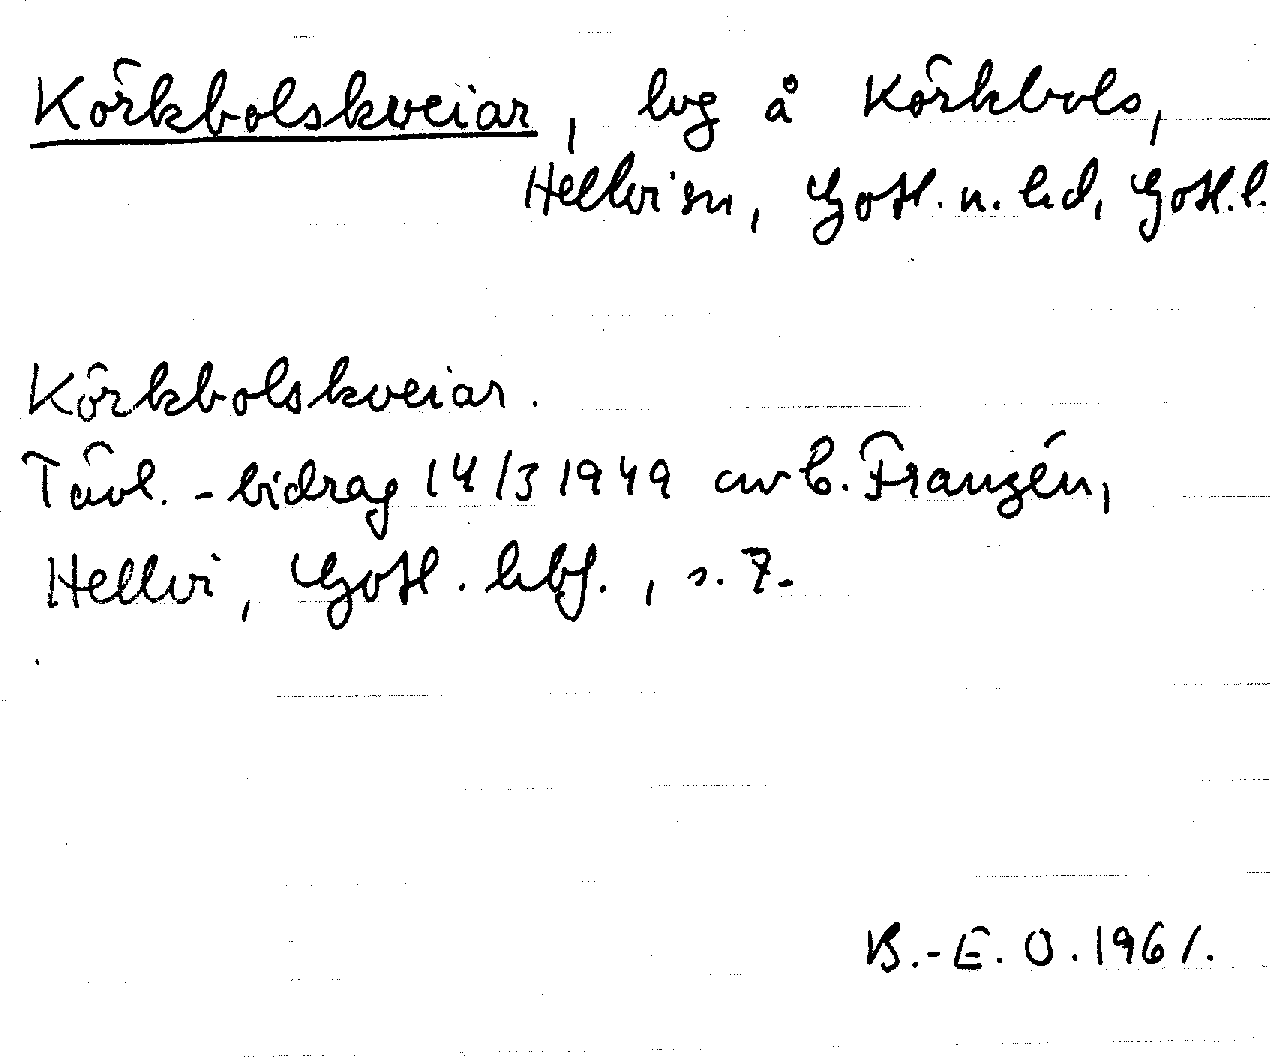 Körkbolskveiar, bvg å Körkbols,
Hellvi sn, Gotl. n. hd, Gotl. l.
Körkbolskveiar.
Tävl.-bidrag 14/3 1949 av C. Franzén,
Hellvi, Gotl. hbf., s. 7.
B.-E. O. 1961.